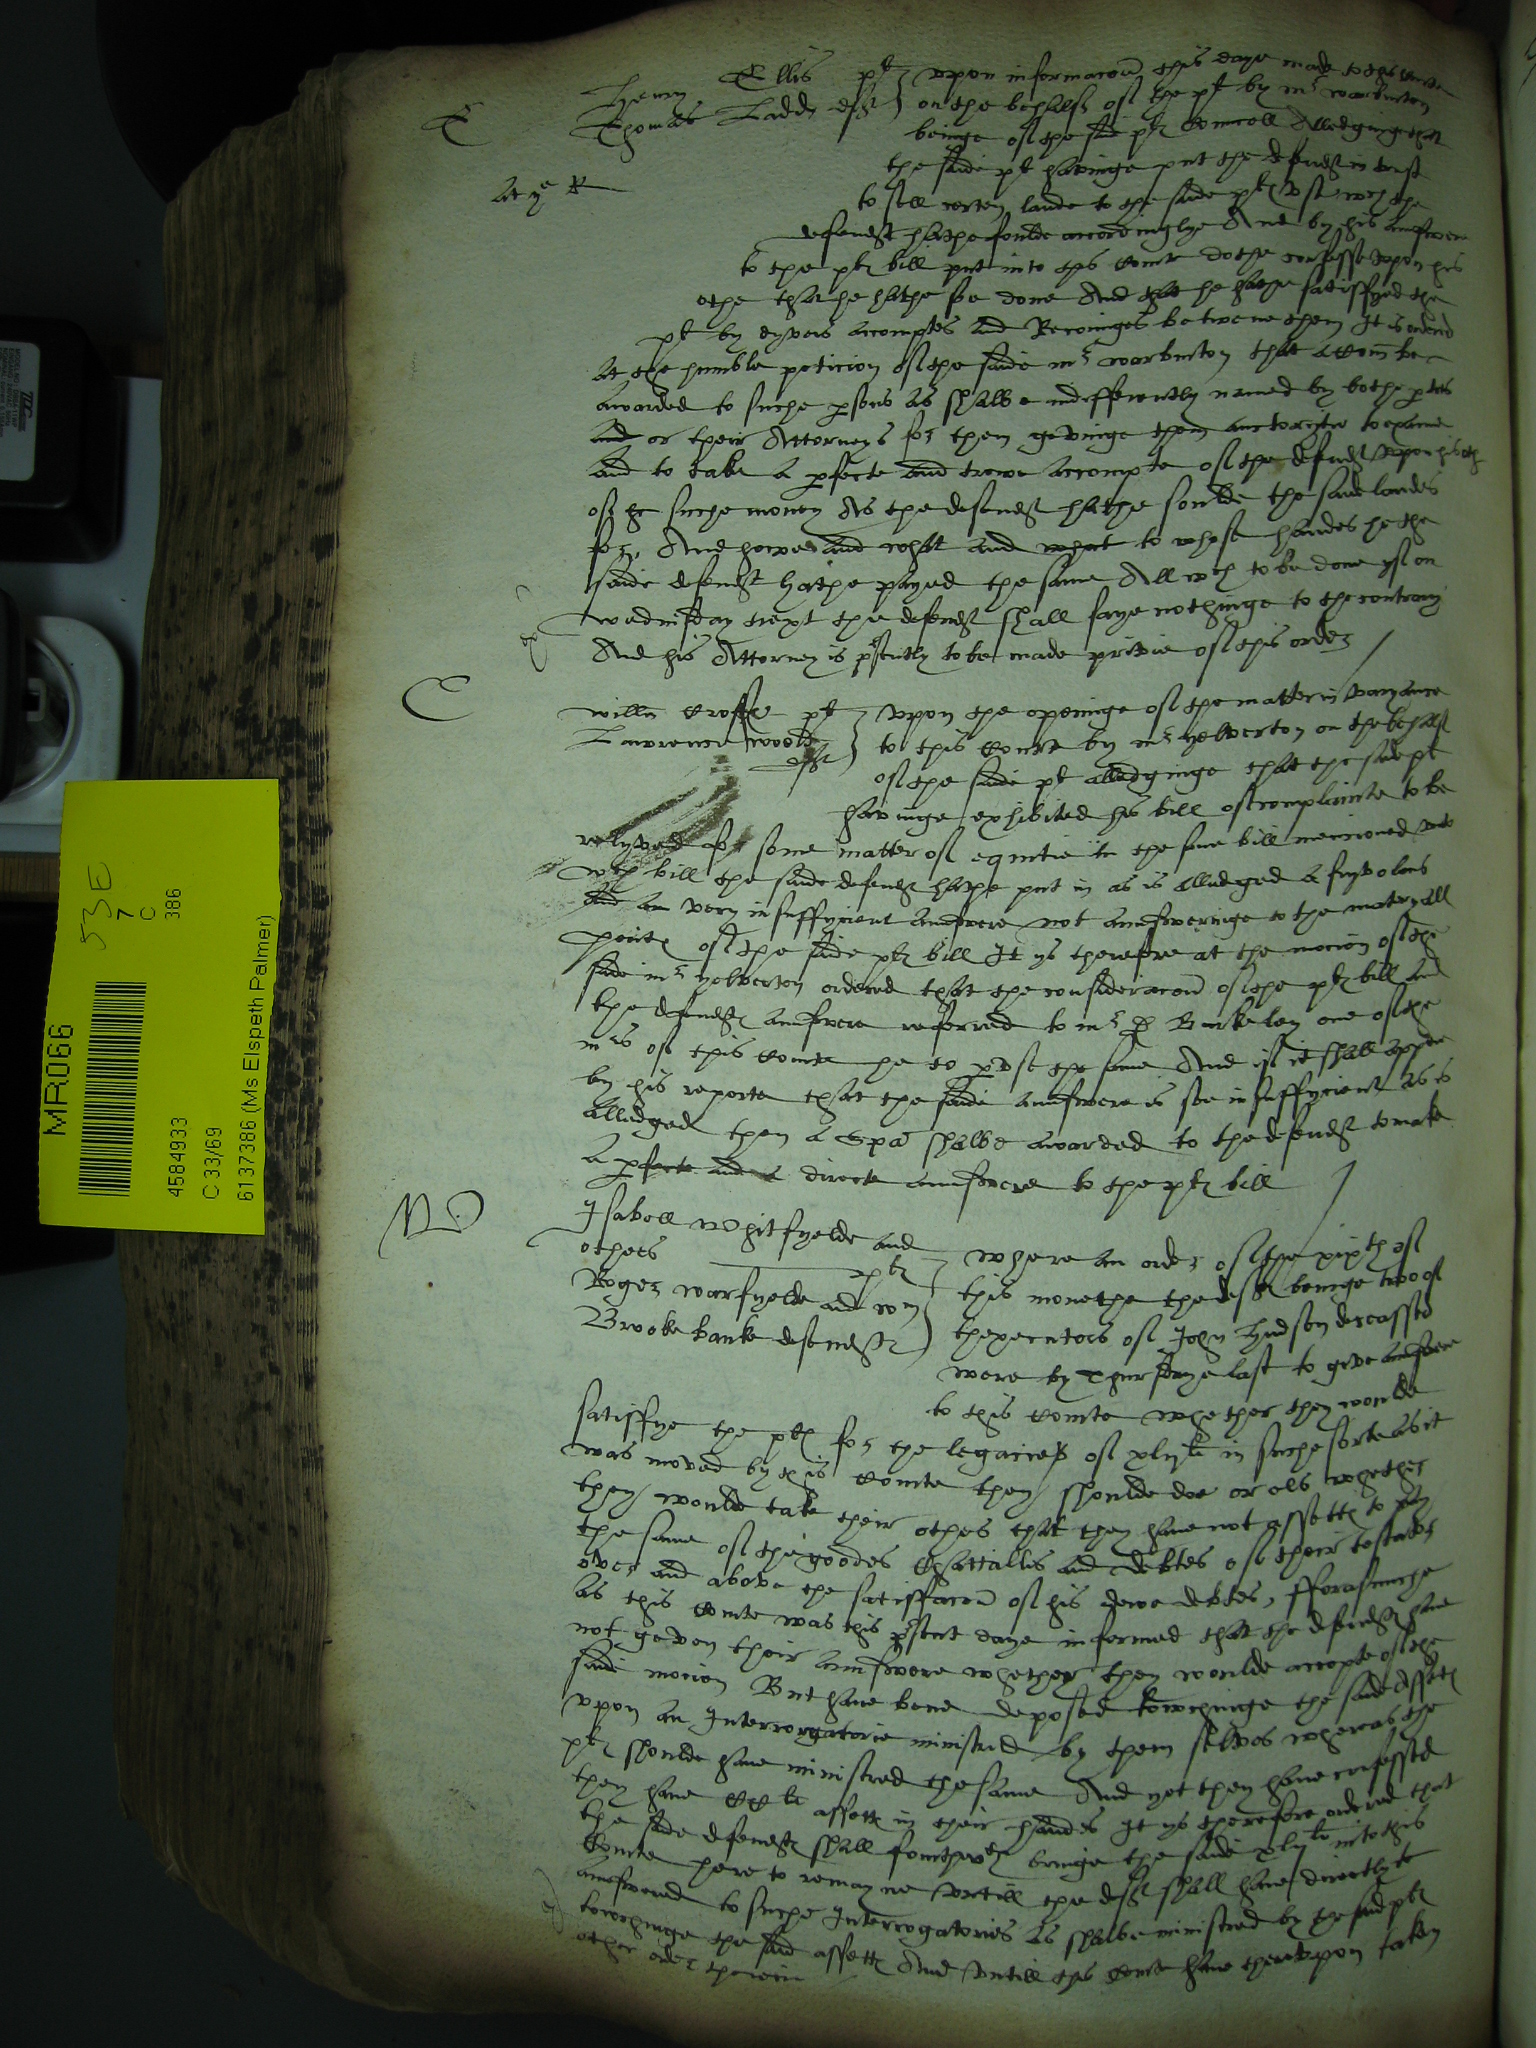 E
Henry Ellis plt
Thomas Ladd deft
Upon informacon this daye made to this Courte
on the behalfe of the plt by mr warburton
beinge of the said pltes Councell Alledginge that
the saide plt havinge put the defendt in trust
to sell certen lande to the saide pltes use wch the
defendt hathe soulde accordinglye And by his Aunswere
to the pltes bill put into this Courte dothe confesse upon his
othe that he hathe soe done And that he hathe satisfyed the
plt by dyvers accomptes and Reconinges betwene them It is ordered
At the humble peticion of the saide mr warburton that a Comm be
awarded to suche psons as shalbe indifferently named by bothe pties
and or their Attorneys for them gevinge them auctorytie to examine
and to take a pfecte and trewe accompte of the defendt upon his oth
of suche money As the defendt hathe soulde the saide landes
for, And howe and what and what to whose handes he the
saide defendt hathe payed the same All wch to be done yf on
wednesday next the defendt shall saye nothinge to the contrary
And his Attorney is pntly to be made privie of this order
E
willm Crosse plt
Lawrence woodd
deft
Upon the openinge of the matter in varyaunce
to this Courte by mr yelverton on the behalf
of the saide plt alledginge that the saide plt
havinge exhibited his bill of complainte to be
relyved for some matter of equitie in the same bill mencioned unto
wch bill the saide defendt hathe put in as is alledged a fryvolous
and an very insuffycient aunswere not aunsweringe to the materyall
pointes of the saide pltes bill It ys therefore at the mocion of the
saide mr yelverton ordered that the consideracon of the pltes bill and
the defendtes aunswere referred to mr D Barkeley one of the
mrs of this Courte he to pvse the same And if it shall appere
by his reporte that the saide aunswere is soe insuffycient as is
alledged then a Spa shalbe awarded to the defendt to make
a pfecte and a directe aunswere to the pltes bill
Isabell whitfyelde and
others pltes
Roger warfyelde and wm
Brookebanke defendtes
where an order of the xixth of
this monethe the deftes beinge two of
thexecutors of John Hudson deceassed
were by Thursdaye last to geve aunswere
to this Courte whether they woulde
satisffye the pltes for the legacies of xlijli in suche sorte as it
was moved by this Courte they shoulde doe or els whether
they woulde take their othes that they have not assettes to pay
the same of the goodes Chattallis and debtes of their testator
over and above the satisfaccon of his dewe debtes, fforasmuche
as this Courte was this psent daye informed that the defendtes have
not geven their aunswere whether they woulde accepte of the
saide mocion But have bene deposed towchinge the saide assettes
upon an Interrogatorie ministred by them selves wheras the
pltes shoulde have ministred the same And yet they have confessed
they have CCli assettes in their handes It ys therefore ordered that
the saide defendtes shall fourthwth bringe the saide xlijli into this
Courte here to remayne untill the deftes shall have directly
aunswered to suche Interrogatories as shalbe ministred by the said pltes
towchinge the said assettes And untill this Courte have thereupon taken
other order therein
MR066
53E
7
C
386
4584933
C 33/69
6137386 (Ms Elspeth Palmer)